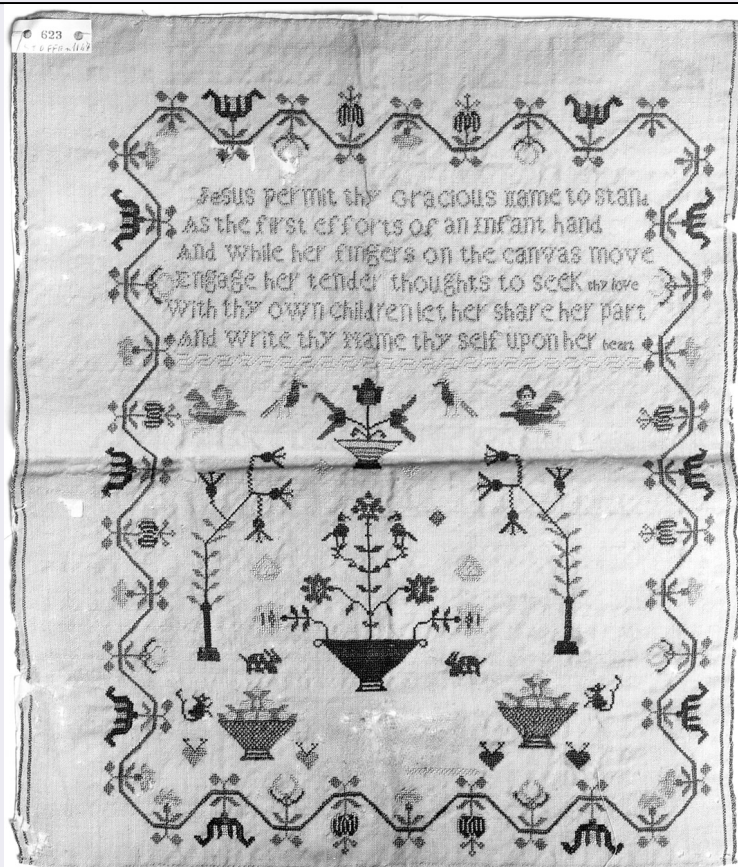 623
Jesus permit thy Gracious Name to stand
As the first efforts of an Infant hand
And While her fingers on the canvas move
Engage her tender thoughts to seek thy love
With thy own Children let her share her part
And Write thy Name thy self upon her heart